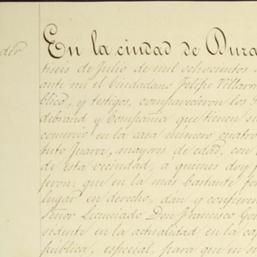 der
En la ciudad de Dura
tiseis de Julio de mil ochocientos
ante mi el Ciudadano Felipe Villarr
blico, y testigos, comparecieron los
debrand y Compañia que tienen su
comercio en la casa número cuatro
tuto Juarez, mayores de edad, con
de esta vecindad, a quienes doy f
feron: que en la más bastante for
lugar en derecho, dan y confieren
Señor Licenciado Don Francisco Gon
sidente en la actualidad en la cap
pública, especial, para que en n